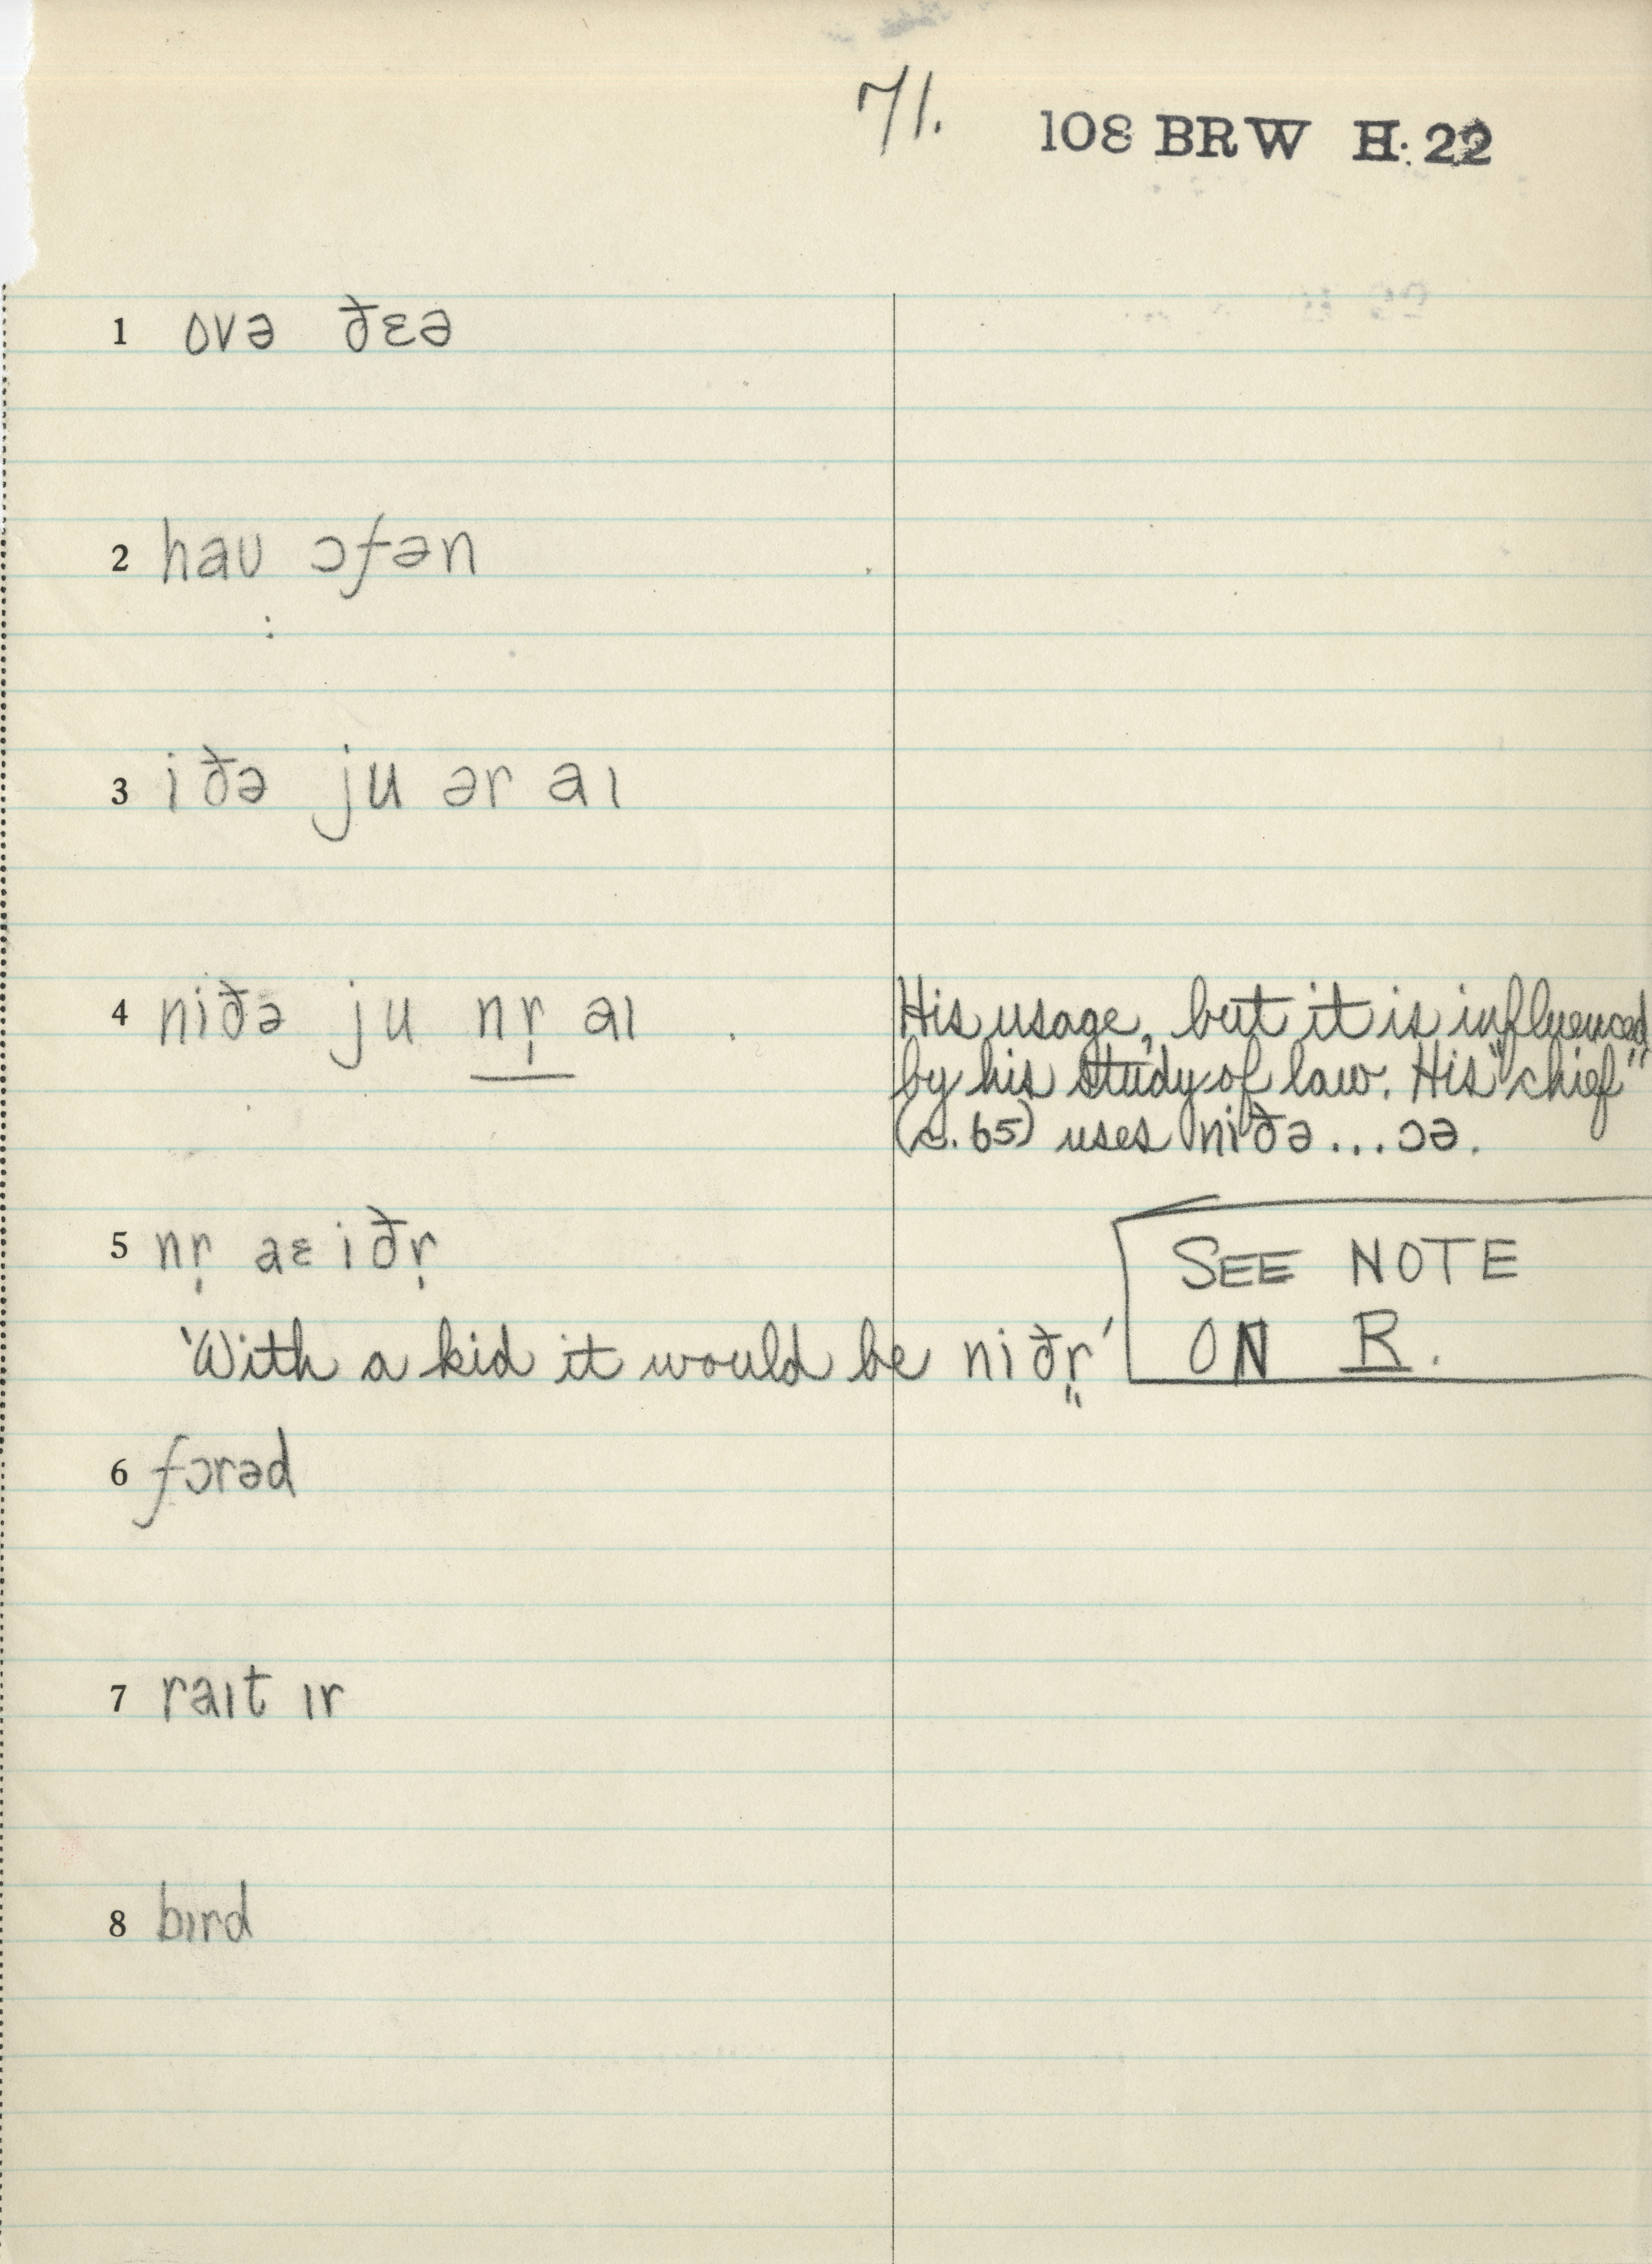 71. 108 BRW H. 22
1 ovə ðɛə
2 haʊ ɔfən
3 iðə ju ər aɪ
4 niðə ju nr̩ aɪ . His usage, but it is influenced
by his study of law. His "chief"
(c. 65) uses niðə...ɔə.
5 nr̩ aɛ iðr̩ SEE NOTE
'With a kid it would be niðr̩' ON R.
6 fɔrəd
7 raɪt ɪr
8 bɪrd